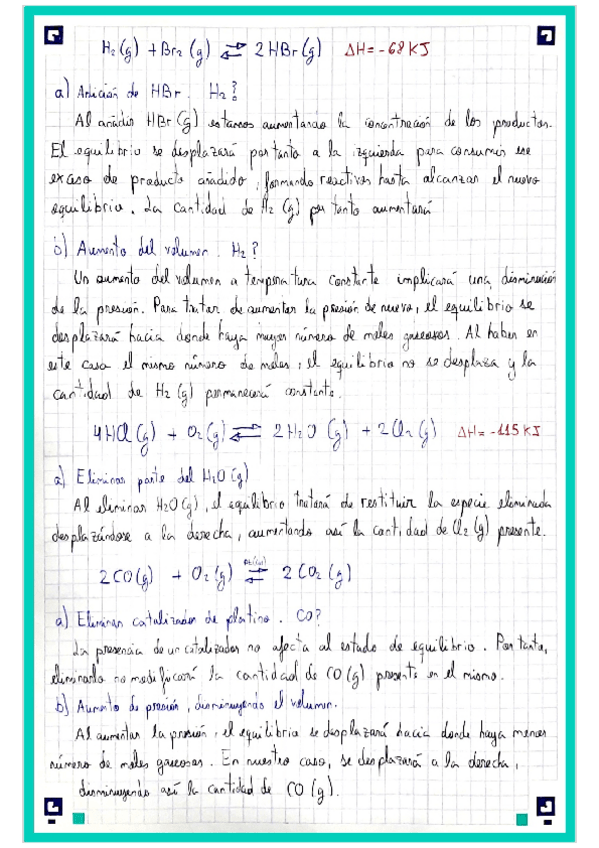 H₂(g) + Br₂(g) ⇄ 2HBr(g) ΔH = -68 KJ
a) Adición de HBr. H₂?
Al añadir HBr(g) estamos aumentando la concentración de los productos.
El equilibrio se desplazará por tanto a la izquierda para consumir ese
exceso de producto añadido, formando reactivos hasta alcanzar el nuevo
equilibrio. La cantidad de H₂(g) por tanto aumentará
b) Aumento del volumen. H₂?
Un aumento del volumen a temperatura constante implicará una disminución
de la presión. Para tratar de aumentar la presión de nuevo, el equilibrio se
desplazará hacia donde haya mayor número de moles gaseosos. Al haber en
este caso el mismo número de moles, el equilibrio no se desplaza y la
cantidad de H₂(g) permanecerá constante.
4HCl(g) + O₂(g) ⇄ 2H₂O(g) + 2Cl₂(g) ΔH = -115 KJ
a) Eliminar parte del H₂O(g)
Al eliminar H₂O(g), el equilibrio tratará de restituir la especie eliminada
desplazándose a la derecha, aumentando así la cantidad de Cl₂(g) presente.
2CO(g) + O₂(g) ⇄ 2CO₂(g)
a) Eliminar catalizador de platino. CO?
La presencia de un catalizador no afecta al estado de equilibrio. Por tanto,
eliminarlo no modificará la cantidad de CO(g) presente en el mismo.
b) Aumento de presión, disminuyendo el volumen.
Al aumentar la presión, el equilibrio se desplazará hacia donde haya menor
número de moles gaseosos. En nuestro caso, se desplazará a la derecha,
disminuyendo así la cantidad de CO(g).